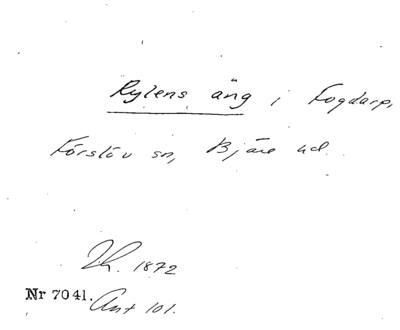 Rylens äng i Fogdarp,
Förslöv sn, Bjäre hd.
Lh. 1872
Nr 7041. Ant 101.